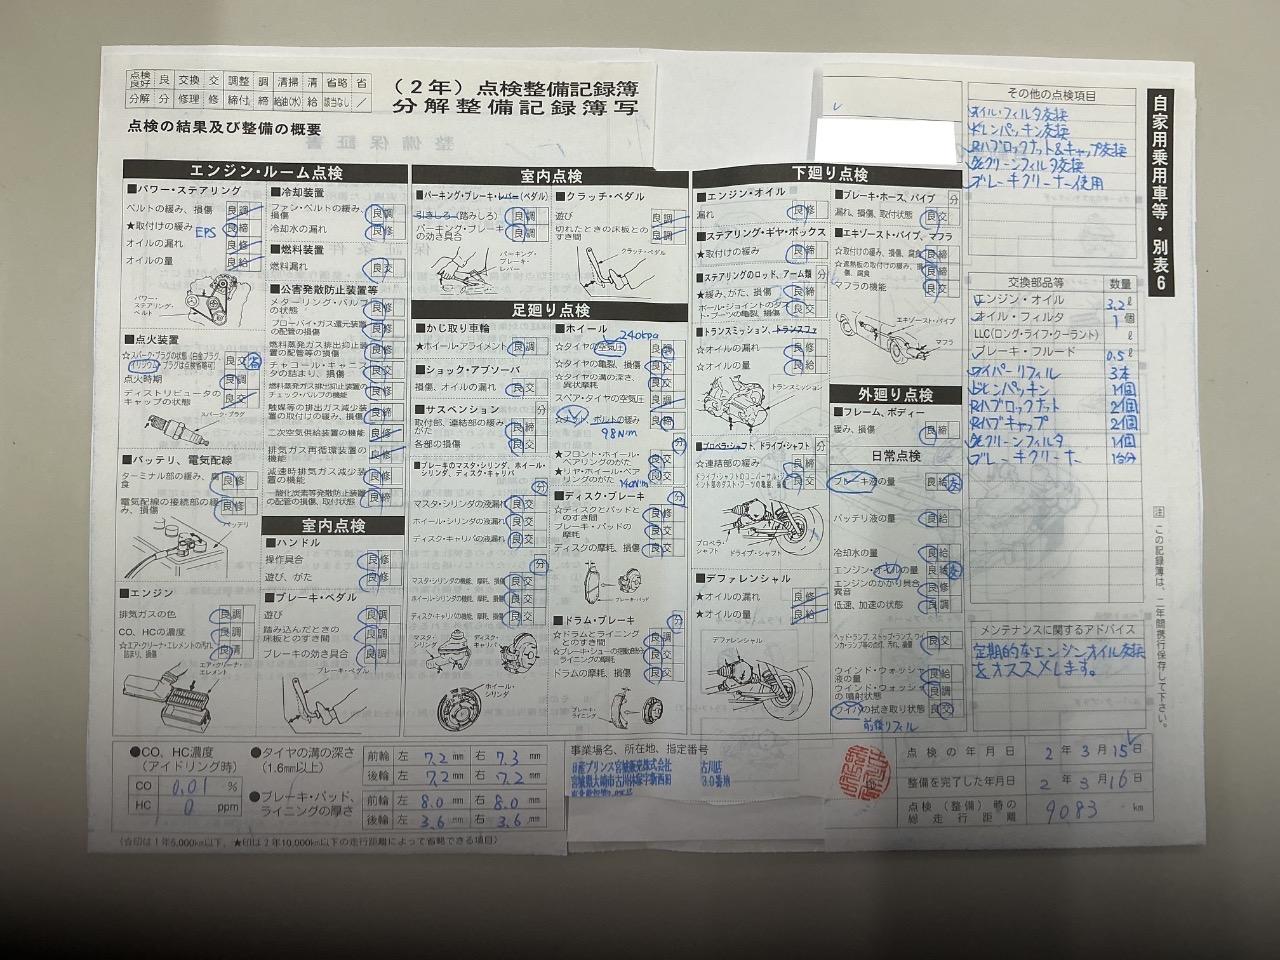 点検良好 良 交換 交 調整 調 清掃 清 省略 省
分解 分 修理 修 締付 締 給油(水) 給 該当なし ／
(2年)点検整備記録簿
分解整備記録簿写
点検の結果及び整備の概要
自家用乗用車等・別表6
エンジン・ルーム点検
■パワー・ステアリング
ベルトの緩み、損傷 良 調
★取付けの緩み 良 締
EPS
オイルの漏れ 良 修
オイルの量 良 給
パワー・ステアリング・ベルト
■点火装置
☆スパーク・プラグの状態(白金プラグ、イリジウムプラグは点検省略可) 良 交 省
点火時期 良 調
ディストリビュータのキャップの状態 良 交
スパーク・プラグ
■バッテリ、電気配線
ターミナル部の緩み、腐食 良 修
電気配線の接続部の緩み、損傷 良 修
バッテリ
■エンジン
排気ガスの色 良 調
CO、HCの濃度 良 調
☆エア・クリーナ・エレメントの汚れ、詰まり、損傷 良 清
エア・クリーナ・エレメント
■冷却装置
ファン・ベルトの緩み、損傷 良 調
冷却水の漏れ 良 修
■燃料装置
燃料漏れ 良 交
■公害発散防止装置等
メターリング・バルブの状態 良 修
ブローバイ・ガス還元装置の配管の損傷 良 修
燃料蒸発ガス排出抑止装置の配管等の損傷 良 修
チャコール・キャニスタの詰まり、損傷 良 修
燃料蒸発ガス排出抑止装置のチェック・バルブの機能 良 修
触媒等の排出ガス減少装置の取付けの緩み、損傷 良 修
二次空気供給装置の機能 良 修
排気ガス再循環装置の機能 良 修
減速時排気ガス減少装置の機能 良 修
一酸化炭素等発散防止装置の配管の損傷、取付状態 良 締
室内点検
■ハンドル
操作具合 良 修
遊び、がた 良 修
■ブレーキ・ペダル
遊び 良 調
踏み込んだときの床板とのすき間 良 調
ブレーキの効き具合 良 調
ブレーキ・ペダル
室内点検
■パーキング・ブレーキ・レバー(ペダル)
引きしろ(踏みしろ) 良 調
パーキング・ブレーキの効き具合 良 交
パーキング・ブレーキ・レバー
■クラッチ・ペダル
遊び 良 調
切れたときの床板とのすき間 良 調
クラッチ・ペダル
足廻り点検
■かじ取り車輪
★ホイール・アライメント 良 調
■ショック・アブソーバ
損傷、オイルの漏れ 良 交
■サスペンション 分
取付部、連結部の緩み、がた 良 締
各部の損傷 良 交
■ブレーキのマスタ・シリンダ、ホイール・シリンダ、ディスク・キャリパ 分
マスタ・シリンダの液漏れ 良 交
ホイール・シリンダの液漏れ 良 交
ディスク・キャリパの液漏れ 良 交
分
マスタ・シリンダの機能、摩耗、損傷 良 交
ホイール・シリンダの機能、摩耗、損傷 良 交
ディスク・キャリパの機能、摩耗、損傷 良 交
マスタ・シリンダ
ディスク・キャリパ
ホイール・シリンダ
■ホイール
240kpa
☆タイヤの空気圧 良 調
☆タイヤの亀裂、損傷 良 交
☆タイヤの溝の深さ、異状摩耗 良 交
スペア・タイヤの空気圧 良 調
☆ナット、ボルトの緩み 良 締
98N·m
分
★フロント・ホイール・ベアリングのがた 良 締
★リヤ・ホイール・ベアリングのがた 良 締
■ディスク・ブレーキ 分
☆ディスクとパッドとのすき間 良 修
ブレーキ・パッドの摩耗 良 交
ディスクの摩耗、損傷 良 交
ブレーキ・パッド
■ドラム・ブレーキ 分
☆ドラムとライニングとのすき間 良 調
☆ブレーキ・シューの摺動部分、ライニングの摩耗 良 交
ドラムの摩耗、損傷 良 交
ブレーキ・ライニング
下廻り点検
■エンジン・オイル
漏れ 良 修
■ステアリング・ギヤ・ボックス
★取付けの緩み 良 締
■ステアリングのロッド、アーム類 分
★緩み、がた、損傷 良 締
ボール・ジョイントのダスト・ブーツの亀裂、損傷 良 交
■トランスミッション、トランスファ
☆オイルの漏れ 良 修
☆オイルの量 良 給
トランスミッション
■プロペラ・シャフト、ドライブ・シャフト 分
☆連結部の緩み 良 締
ドライブ・シャフトのユニバーサル・ジョイント部のダスト・ブーツの亀裂、損傷 良 交
プロペラ・シャフト
ドライブ・シャフト
■デファレンシャル
★オイルの漏れ 良 修
★オイルの量 良 給
デファレンシャル
■ブレーキ・ホース、パイプ 分
漏れ、損傷、取付状態 良 交
■エキゾースト・パイプ、マフラ
☆取付けの緩み、損傷、腐食 良 締
☆遮熱板の取付けの緩み、損傷、腐食 良 締
マフラの機能 良 交
エキゾースト・パイプ
マフラ
外廻り点検
■フレーム、ボディー
緩み、損傷 良 締
日常点検
ブレーキ液の量 良 給 交
バッテリ液の量 良 給
冷却水の量 良 給
エンジン・オイルの量 良 給 交
エンジンのかかり具合、異音 良 修
低速、加速の状態 良 調
ヘッド・ランプ、ストップ・ランプ、ウインカ・ランプ等の点灯、汚れ、損傷 良 交
ウインド・ウォッシャ液の量 良 給
ウインド・ウォッシャの噴射状態 良 調
ワイパの拭き取り状態 良 交
前後リフィル
その他の点検項目
オイル・フィルタ交換
ドレンパッキン交換
Rハブロックナット&キャップ交換
クリーンフィルタ交換
ブレーキクリーナー使用
交換部品等 数量
エンジン・オイル 3.2 ℓ
オイル・フィルタ 1 個
LLC(ロング・ライフ・クーラント) ℓ
ブレーキ・フルード 0.5 ℓ
ワイパーリフィル 3本
ドレンパッキン 1個
Rハブロックナット 2個
Rハブキャップ 2個
クリーンフィルタ 1個
ブレーキクリーナー 1台分
メンテナンスに関するアドバイス
定期的なエンジンオイル交換
をオススメします。
注 この記録簿は、二年間携行保存して下さい。
●CO、HC濃度(アイドリング時)
CO 0.01 %
HC 0 ppm
●タイヤの溝の深さ(1.6mm以上)
前輪 左 7.2 mm 右 7.3 mm
後輪 左 7.2 mm 右 7.2 mm
●ブレーキ・パッド、ライニングの厚さ
前輪 左 8.0 mm 右 8.0 mm
後輪 左 3.6 mm 右 3.6 mm
(☆印は1年5,000km以下、★印は2年10,000km以下の走行距離によって省略できる項目)
事業場名、所在地、指定番号
日産プリンス宮城販売株式会社 古川店
点検の年月日 2年3月15日
整備を完了した年月日 2年3月16日
点検(整備)時の総走行距離 9083 km